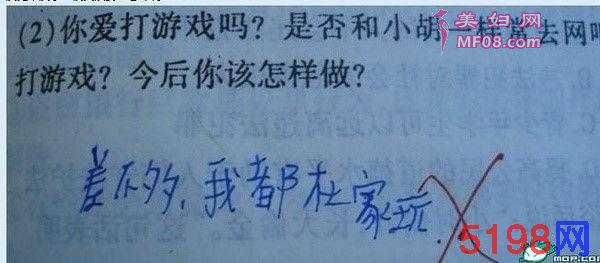 (2)你爱打游戏吗?是否和小胡一样常去网吧
打游戏?今后你该怎样做?
差不多,我都在家玩.
美妇网
MF08.com
5198网
MOP.COM